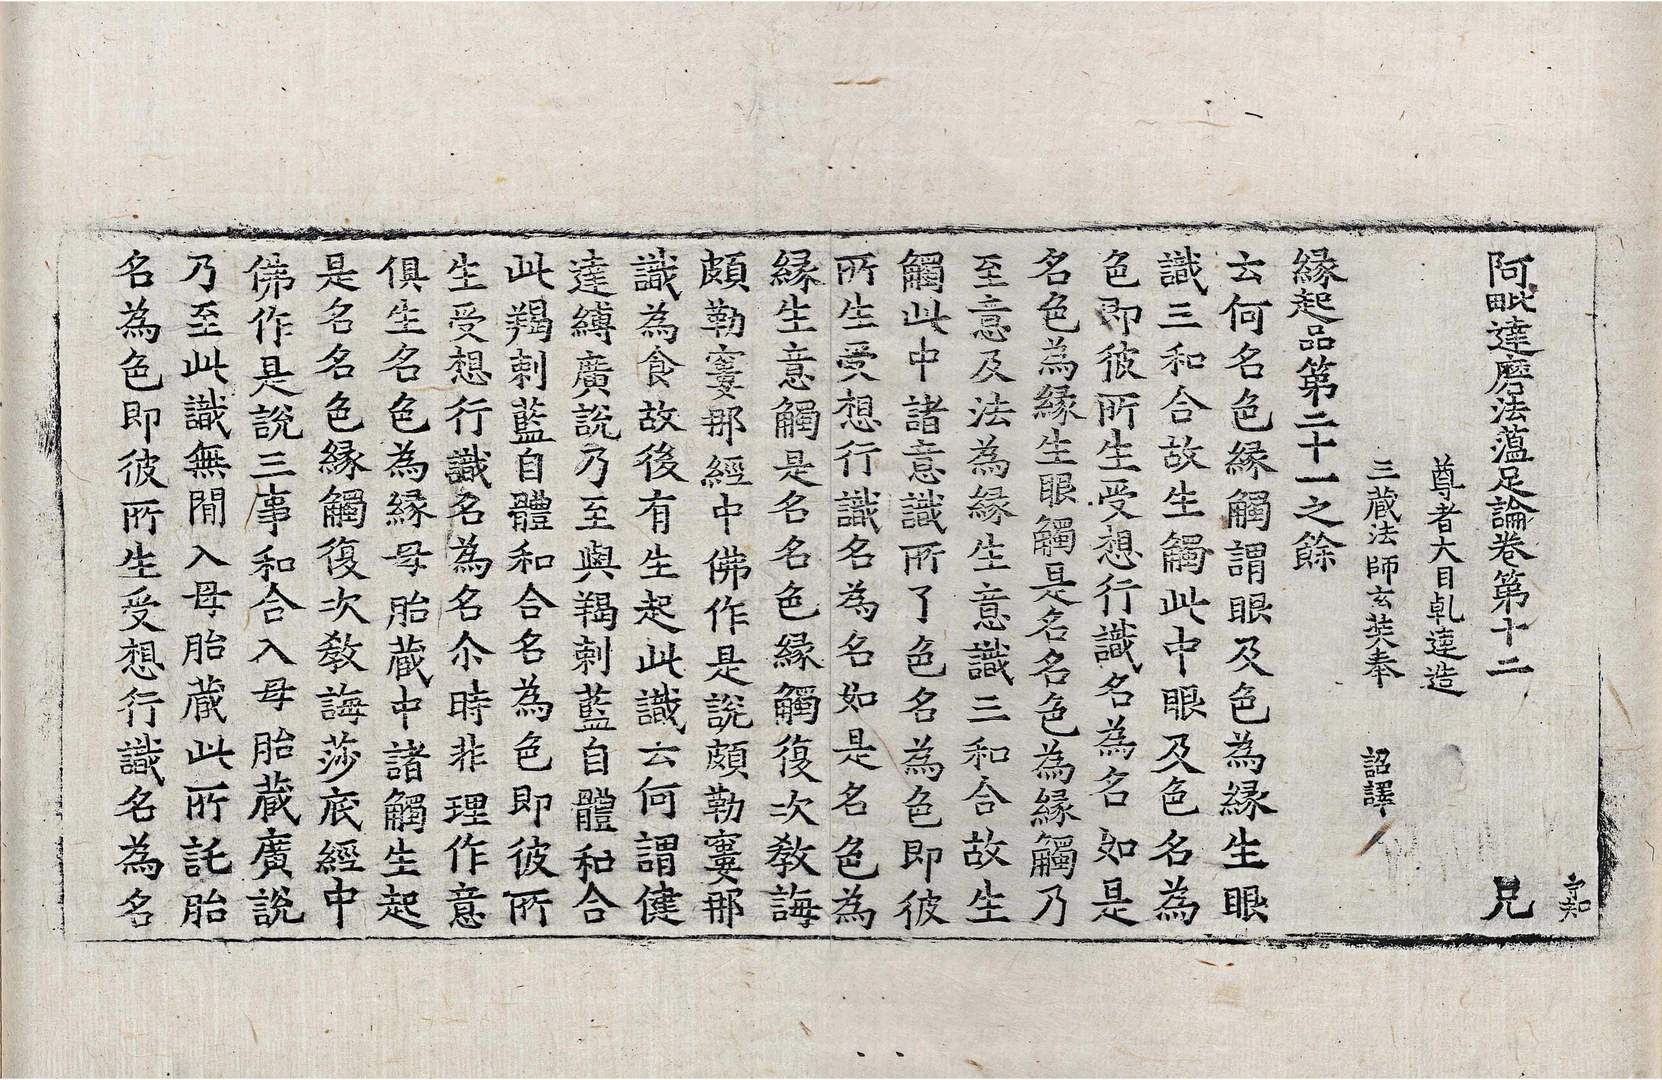 阿毗達磨法蘊足論卷第十二 兄
尊者大目乹連造
三藏法師玄奘奉 詔譯
縁起品第二十一之餘
云何名色縁觸謂眼及色為縁生眼
識三和合故生觸此中眼及色名為
色即彼所生受想行識名為名如是
名色為縁生眼觸是名名色為縁觸乃
至意及法為縁生意識三和合故生
觸此中諸意識所了色名為色即彼
所生受想行識名為名如是名色為
縁生意觸是名名色縁觸復次教誨
頗勒窶那經中佛作是說頗勒窶那
識為食故後有生起此識云何謂健
達縛廣說乃至與羯剌藍自體和合
此羯剌藍自體和合名為色即彼所
生受想行識名為名尒時非理作意
俱生名色為縁母胎藏中諸觸生起
是名名色縁觸復次教誨莎底經中
佛作是說三事和合入母胎藏廣說
乃至此識無間入母胎藏此所託胎
名為色即彼所生受想行識名為名